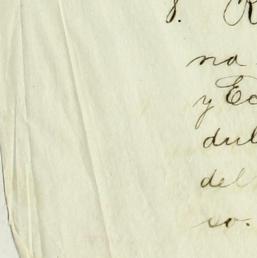 8. R
na
y Ec
dul
del
so.